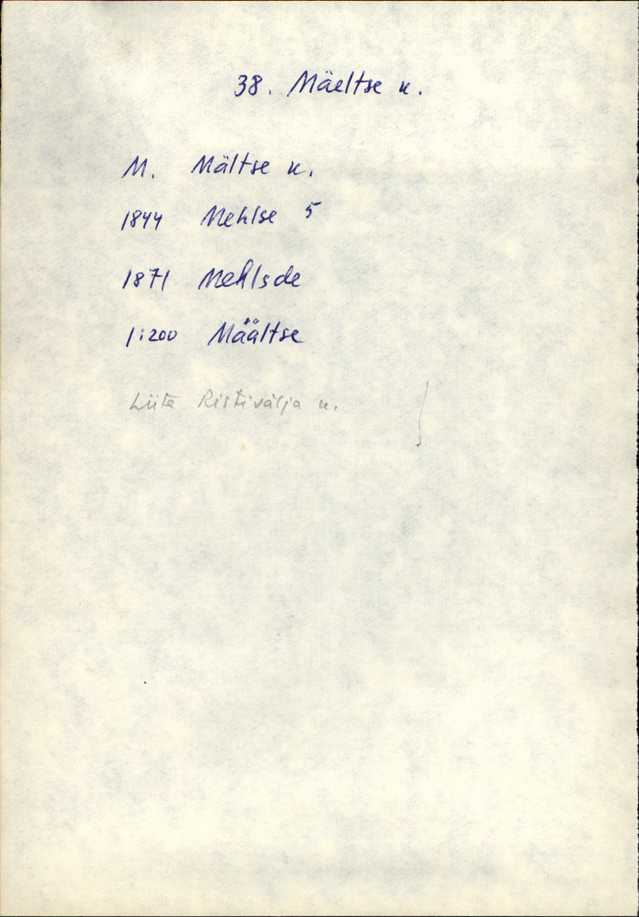 38. Mäeltse k.
M. Mältse k.
1844 Mehlse 5
1871 Mehlsde
1:200 Määltse
Liita Ristivälja k.